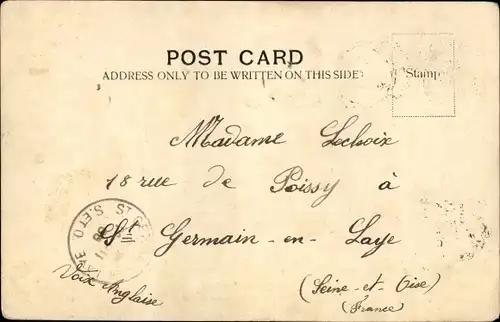 POST CARD
ADDRESS ONLY TO BE WRITTEN ON THIS SIDE
Stamp
Madame Lechoix
18 rue de Poissy à
St Germain-en-Laye
Voix Anglaise
(Seine-et-Oise)
(France)